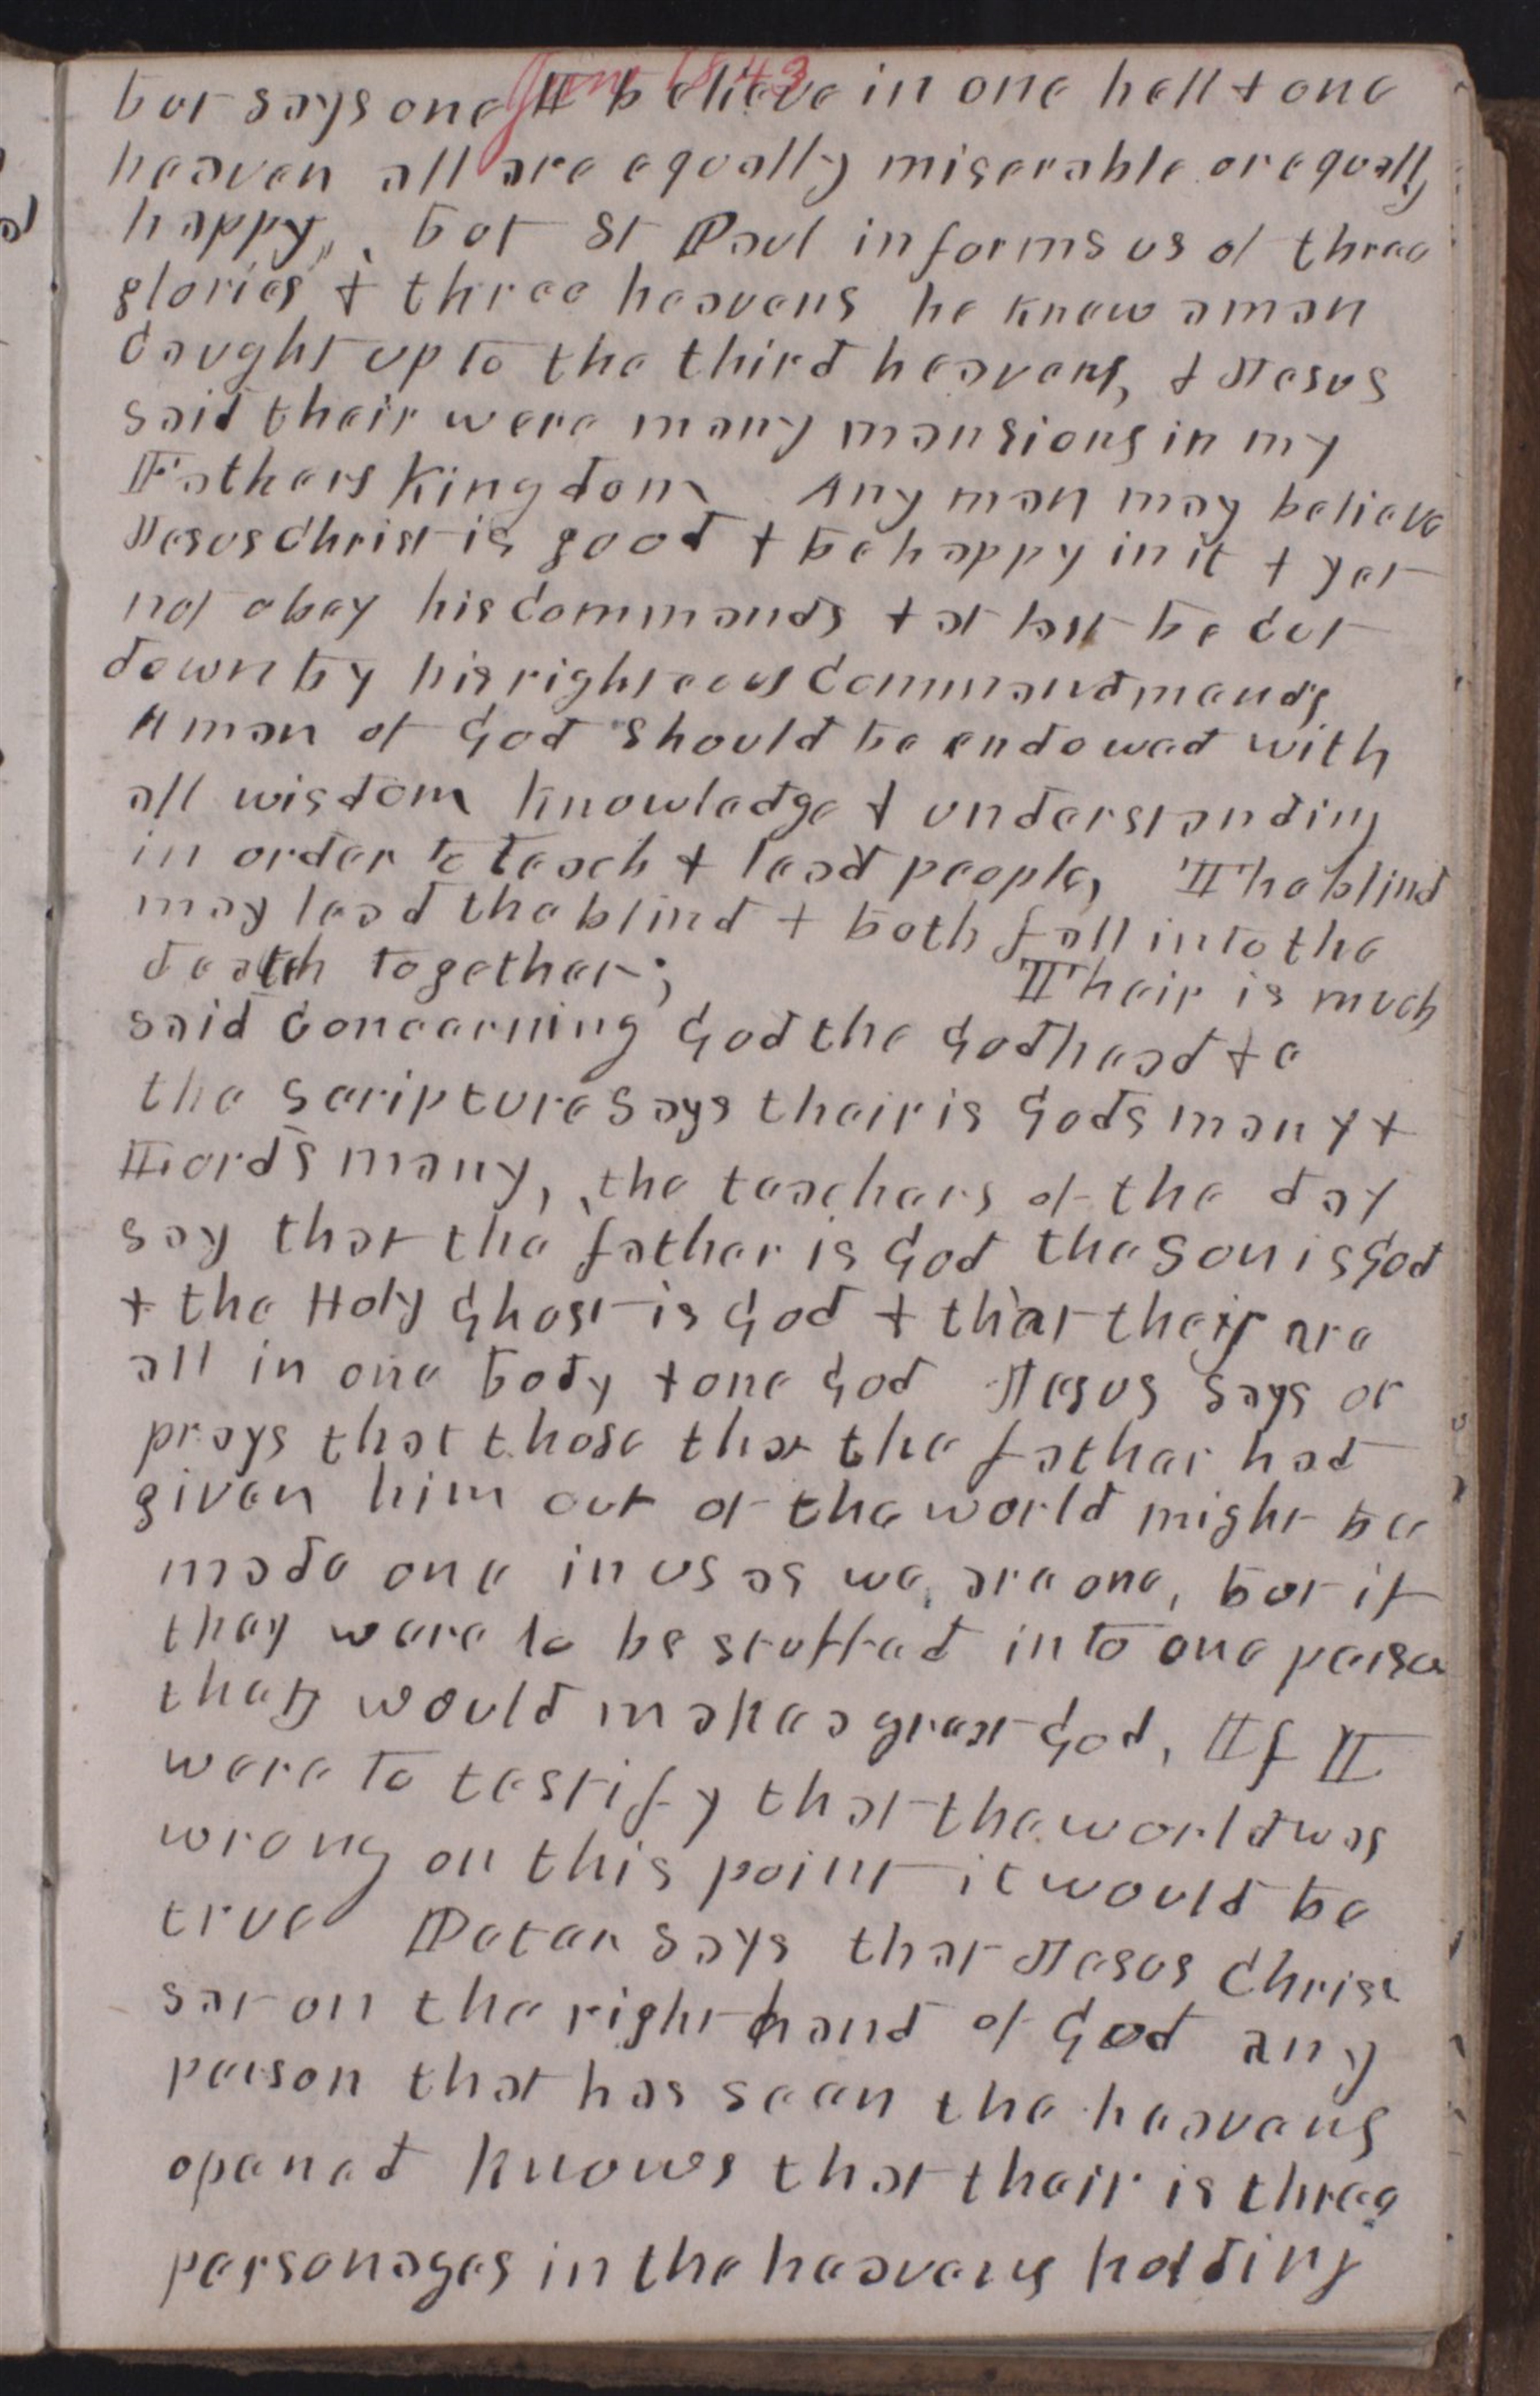 June 1843
but says one I believe in one hell & one
heaven all are equally miserable or equally
happy, but St Paul informs us of three
glories & three heavens he knew a man
caught up to the third heavens, & Jesus
said their were many mansions in my
Fathers Kingdom Any man may believe
Jesus Christ is good & be happy in it & yet
not obey his commands & at last be cut
down by his righteous commandmands
A man of God should be endowed with
all wisdom knowledge & understanding
in order to teach & lead people, The blind
may lead the blind & both fall into the
death together; Their is much
said concerning God the Godhead & c
the scripture says their is Gods many &
Lords many, the teachers of the day
say that the father is God the Son is God
& the Holy Ghost is God & that they are
all in one body & one God Jesus says or
prays that those that the father had
given him out of the world might be
made one in us as we are one, but if
they were to be stuffed into one person
that would make a great God, If I
were to testify that the world was
wrong on this point it would be
true Peter says that Jesus Christ
sat on the right hand of God any
person that has seen the heavens
opened knows that their is three
personages in the heavens holding